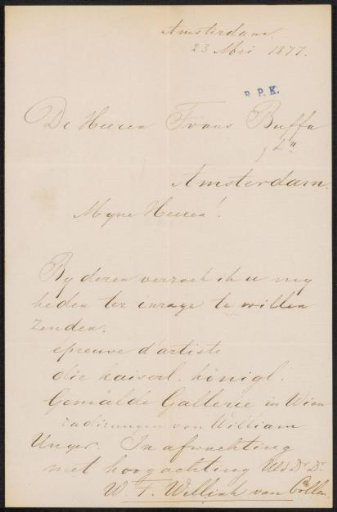 Amsterdam
23 Mei 1877.
R.P.K.
De Heeren Frans Buffa
Amsterdam.
Myne Heeren!
By dezen verzoek ik u my
heden ter inzage te willen
zenden.
épreuve d'artiste
die kaiserl. königl.
Gemälde Gallerie in Wien
radirungen von William
Unger. In afwachting
met hoogachting UEd Dr Dr
W F. Willink van Collen